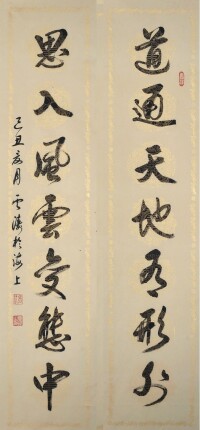 道通天地有形外
思入風雲變態中
己丑夏月雲濤於海上